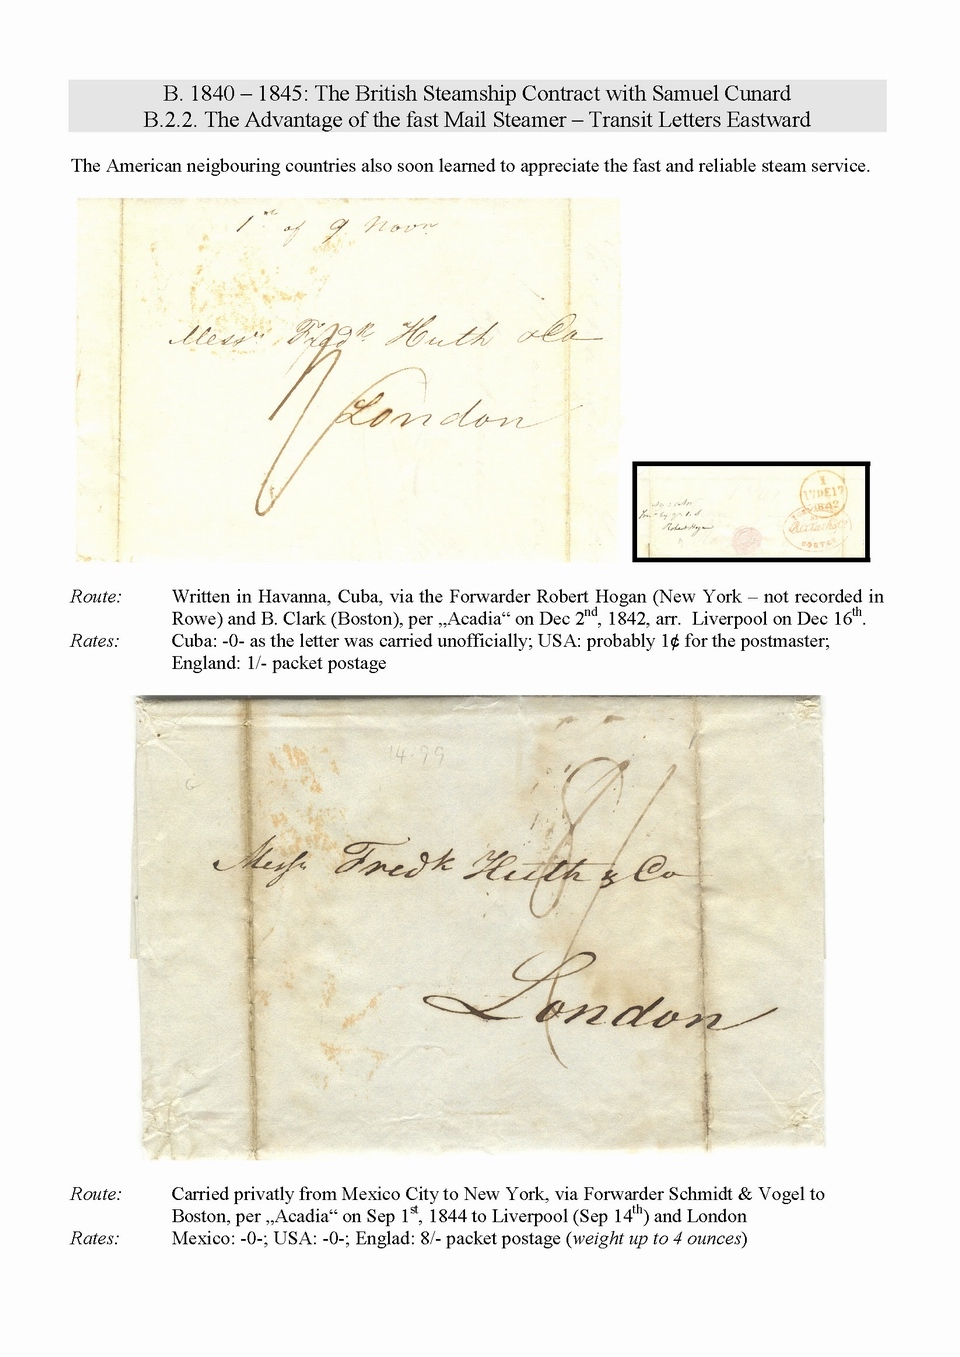 B. 1840 – 1845: The British Steamship Contract with Samuel Cunard
B.2.2. The Advantage of the fast Mail Steamer – Transit Letters Eastward
The American neigbouring countries also soon learned to appreciate the fast and reliable steam service.
1st of 9 Novr
Messrs Fredk Huth & Co
London
1
17DE17
1842
BOSTON
Route: Written in Havanna, Cuba, via the Forwarder Robert Hogan (New York – not recorded in
Rowe) and B. Clark (Boston), per „Acadia“ on Dec 2nd, 1842, arr. Liverpool on Dec 16th.
Rates: Cuba: -0- as the letter was carried unofficially; USA: probably 1¢ for the postmaster;
England: 1/- packet postage
14.99
8/
Messrs Fredk Huth & Co
London
Route: Carried privatly from Mexico City to New York, via Forwarder Schmidt & Vogel to
Boston, per „Acadia“ on Sep 1st, 1844 to Liverpool (Sep 14th) and London
Rates: Mexico: -0-; USA: -0-; Englad: 8/- packet postage (weight up to 4 ounces)